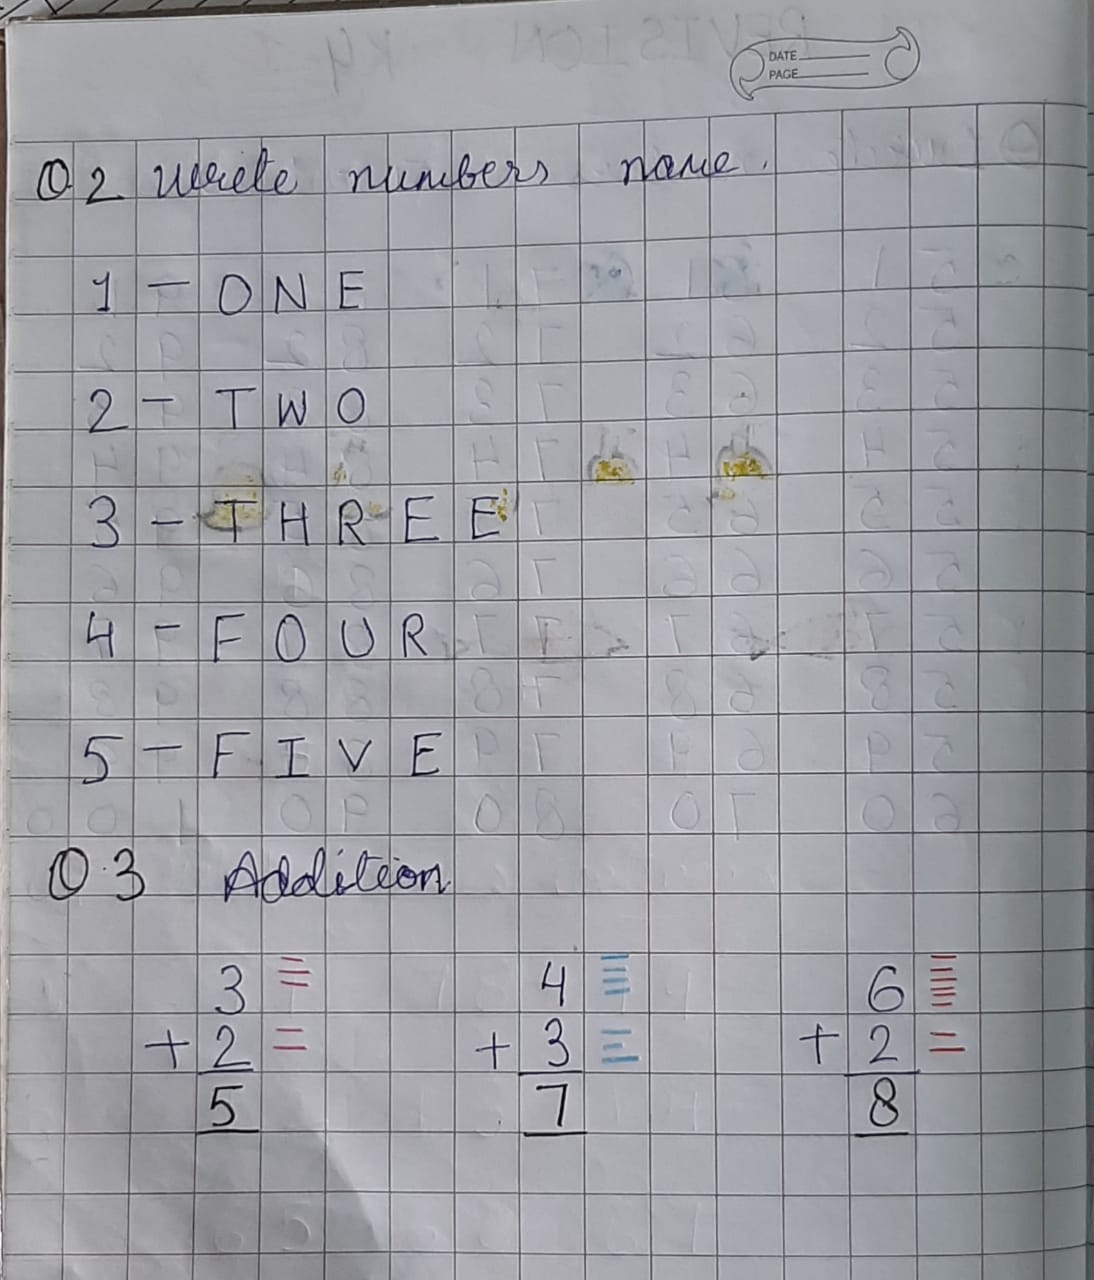 DATE
PAGE
Q2 Write numbers name.
1 - ONE
2 - TWO
3 - THREE
4 - FOUR
5 - FIVE
Q.3 Addition
3 4 6
+ 2 + 3 + 2
5 7 8